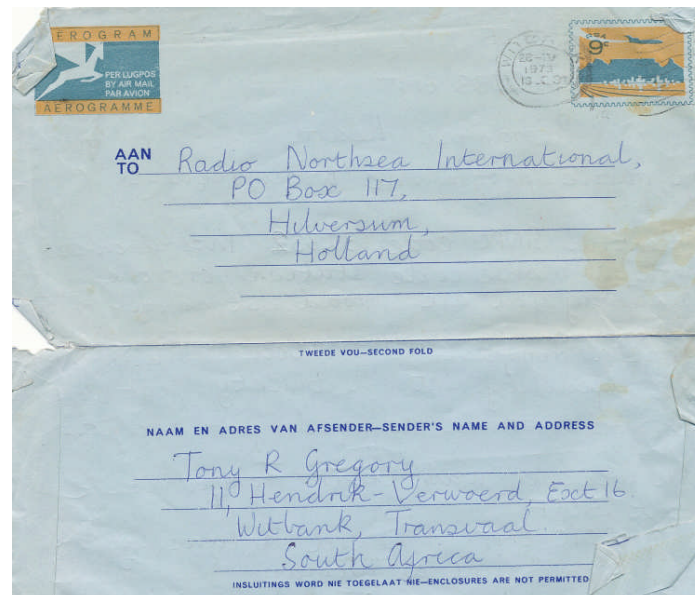 AEROGRAM
PER LUGPOS
BY AIR MAIL
PAR AVION
AEROGRAMME
1973
9c
AAN
TO
Radio Northsea International,
PO Box 117,
Hilversum,
Holland
TWEEDE VOU—SECOND FOLD
NAAM EN ADRES VAN AFSENDER—SENDER'S NAME AND ADDRESS
Tony R Gregory
11, Hendrik-Verwoerd, Ext 16
Witbank, Transvaal.
South Africa
INSLUITINGS WORD NIE TOEGELAAT NIE—ENCLOSURES ARE NOT PERMITTED